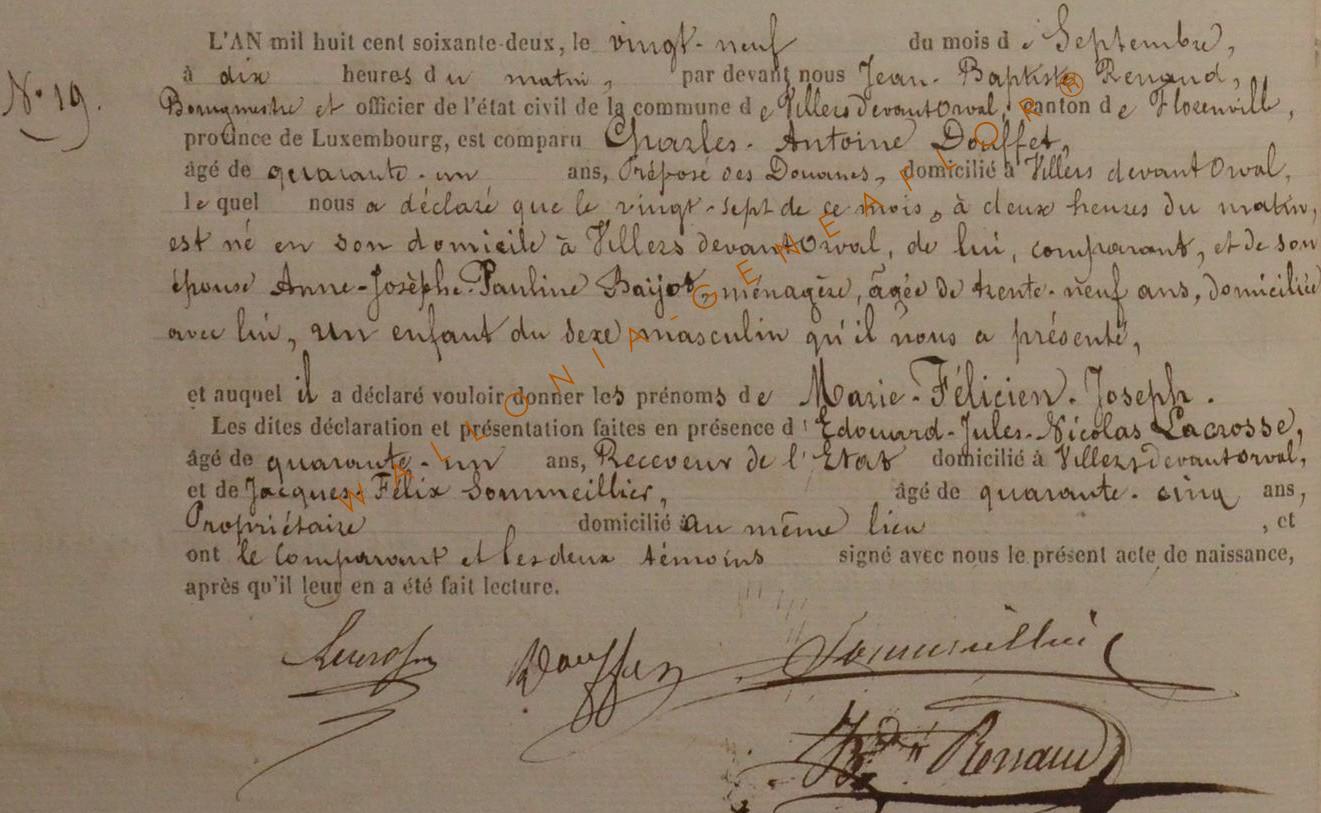 L'AN mil huit cent soixante-deux, le vingt-neuf du mois de Septembre,
à dix heures du matin, par devant nous Jean-Baptiste Renaud,
N° 19.
Bourgmestre et officier de l'état civil de la commune de Villers devant Orval, canton de Florenville,
province de Luxembourg, est comparu Charles-Antoine Douffet,
âgé de quarante-un ans, Préposé des Douanes, domicilié à Villers devant Orval,
lequel nous a déclaré que le vingt-sept de ce mois, à deux heures du matin,
est né en son domicile à Villers devant Orval, de lui, comparant, et de son
épouse Anne-Josèphe-Pauline Baijot, ménagère, âgée de trente-neuf ans, domiciliée
avec lui, un enfant du sexe masculin qu'il nous a présenté,
et auquel il a déclaré vouloir donner les prénoms de Marie-Félicien-Joseph.
Les dites déclaration et présentation faites en présence d'Edouard-Jules-Nicolas Lacrosse,
âgé de quarante-un ans, Receveur de l'Etat domicilié à Villers devant Orval,
et de Jacques-Félix Sommeillier, âgé de quarante-cinq ans,
Propriétaire domicilié au même lieu, et
ont le Comparant et les deux témoins signé avec nous le présent acte de naissance,
après qu'il leur en a été fait lecture.
Lacrosse Douffet Sommeillier
Renaud
WALLONIA-GENEAFLOR®